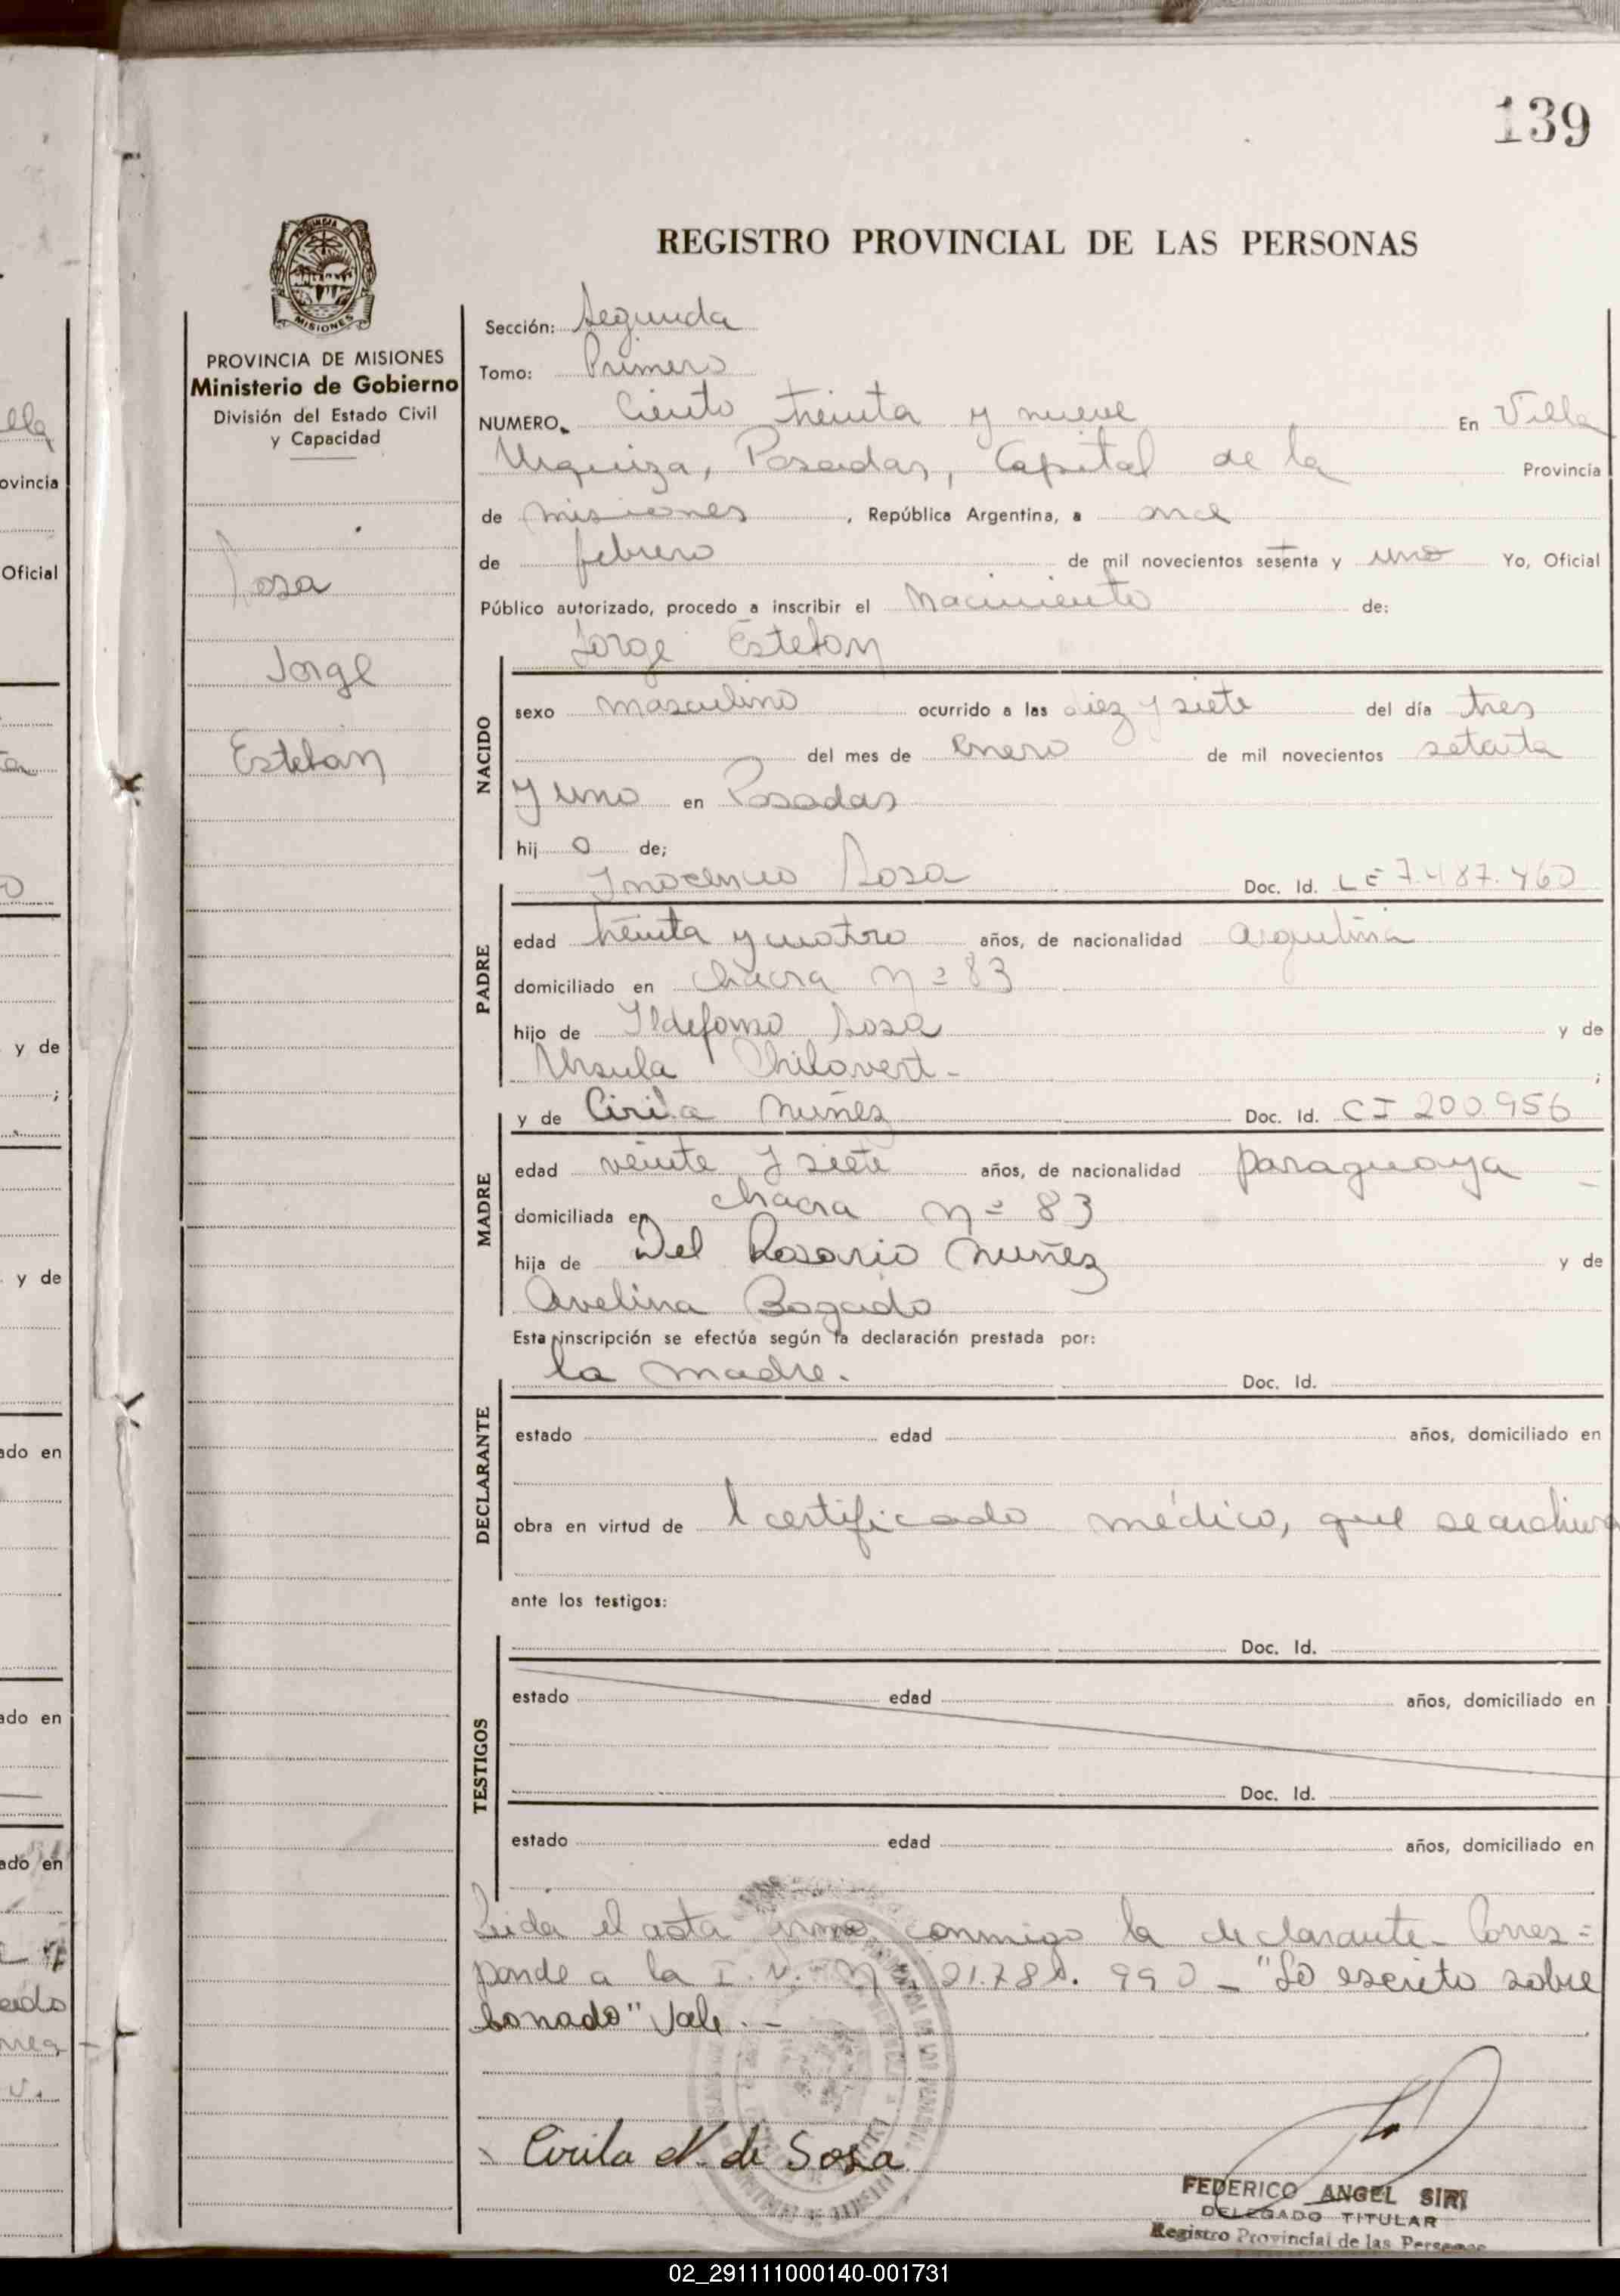 139
REGISTRO PROVINCIAL DE LAS PERSONAS
MISIONES
PROVINCIA DE MISIONES
Ministerio de Gobierno
División del Estado Civil
y Capacidad
Sosa
Jorge
Esteban
Sección: Segunda
Tomo: Primero
NUMERO. Ciento treinta y nueve En Villa
Urquiza, Posadas, Capital de la Provincia
de Misiones, República Argentina, a once
de febrero de mil novecientos sesenta y uno Yo, Oficial
Público autorizado, procedo a inscribir el Nacimiento de:
Jorge Esteban
NACIDO
sexo masculino ocurrido a las diez y siete del día tres
del mes de Enero de mil novecientos setenta
y uno en Posadas
hij o de;
Inocencio Sosa Doc. Id. LE 7.487.460
PADRE
edad treinta y cuatro años, de nacionalidad argentina
domiciliado en chacra Nº 83
hijo de Ildefonso Sosa y de
Ursula Chilavert - ;
y de Cirila Nuñez Doc. Id. CI 200.956
MADRE
edad veinte y siete años, de nacionalidad paraguaya
domiciliada en chacra Nº 83
hija de Del Rosario Nuñez y de
Avelina Bogado
Esta inscripción se efectúa según la declaración prestada por:
la madre. Doc. Id.
DECLARANTE
estado edad años, domiciliado en
obra en virtud de l certificado médico, que se archiva
ante los testigos:
Doc. Id.
TESTIGOS
estado edad años, domiciliado en
Doc. Id.
estado edad años, domiciliado en
Leida el acta firma conmigo la declarante - Corres=
ponde a la I. N. Nº 21.78 . 990 - "Lo escrito sobre
borrado" Vale. -
Cirila N. de Sosa
FEDERICO ANGEL SIRI
DELEGADO TITULAR
Registro Provincial de las Personas
02_291111000140-001731